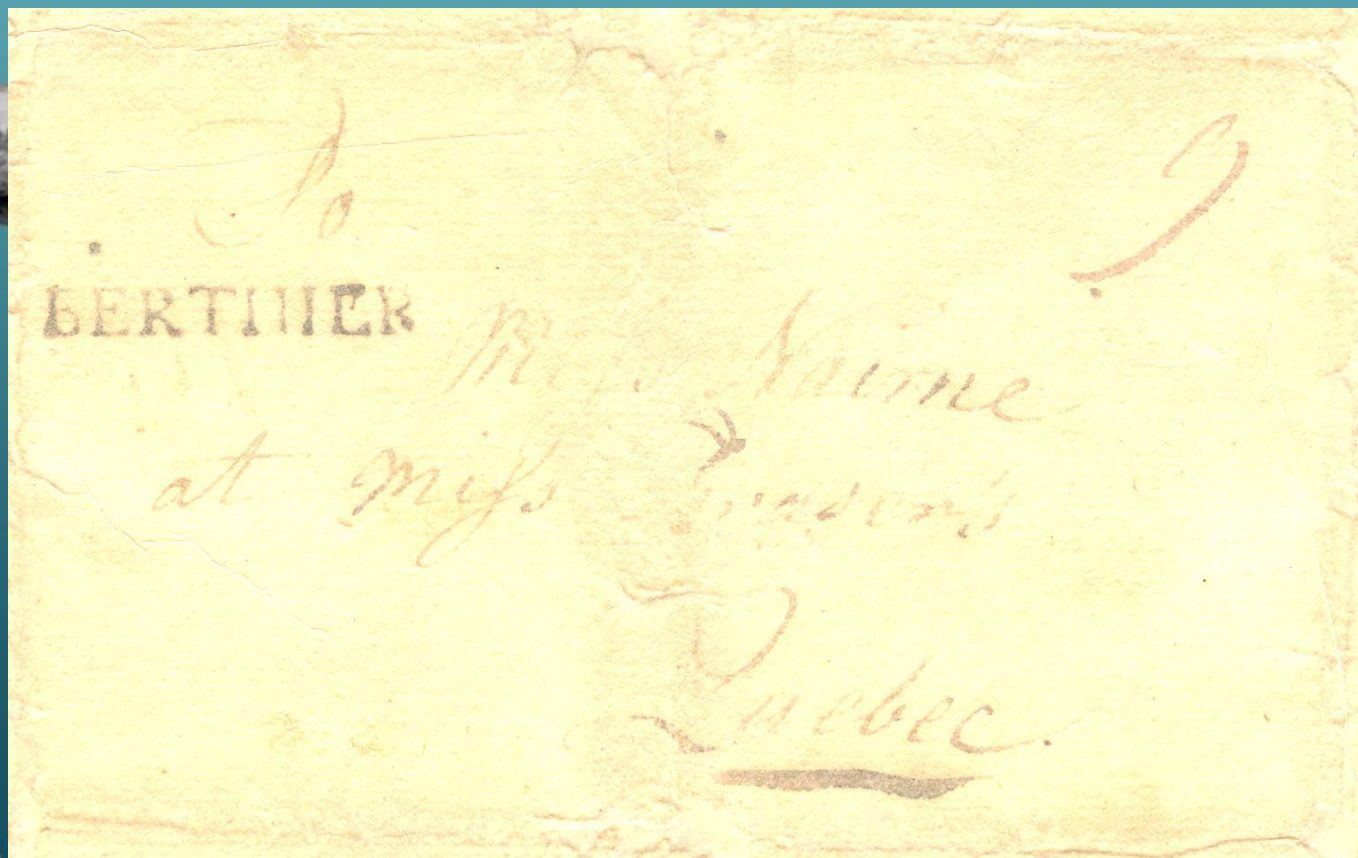 To
9
BERTHIER
Miss Nairne
at Miss
Quebec.